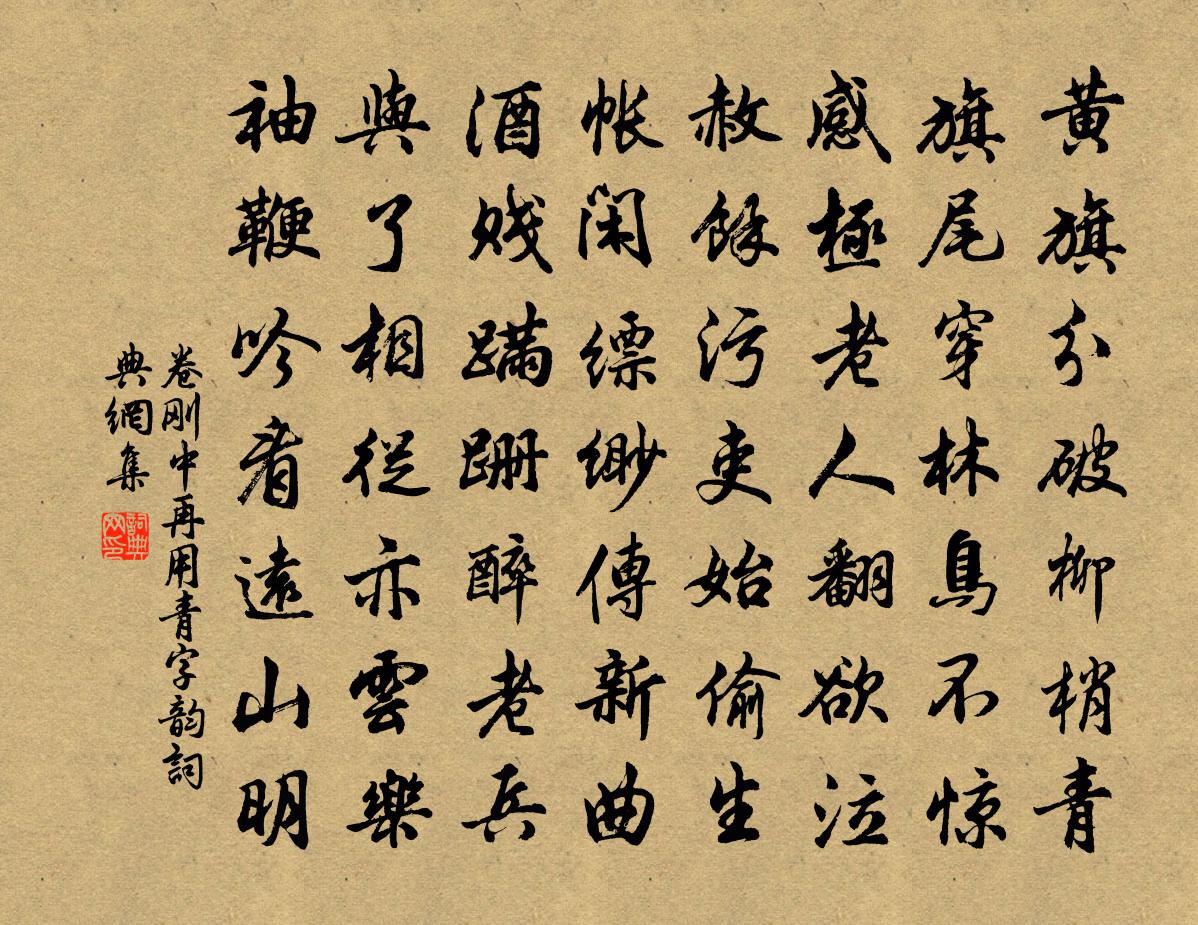 黄旗分破柳梢青
旗尾穿林鳥不惊
感極老人翻欲泣
赦餘污吏始偷生
帐闲缥缈傳新曲
酒贱蹒跚醉老兵
與了相從亦雲樂
袖鞭吟看遠山明
卷刚中再用青字韵詞
典網集
詞典网印